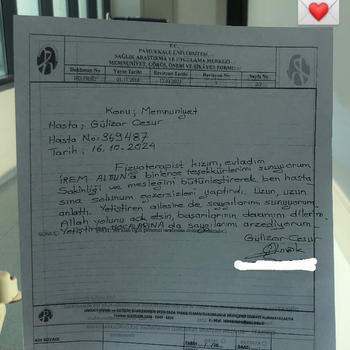 T.C.
PAMUKKALE ÜNİVERSİTESİ
SAĞLIK ARAŞTIRMA VE UYGULAMA MERKEZİ
MEMNUNİYET, GÖRÜŞ, ÖNERİ VE ŞİKAYET FORMU
Doküman No Yayın Tarihi Revizyon Tarihi Revizyon No Sayfa No
Konu; Memnuniyet
Hasta; Gülizar Cesur
Hasta No: 369487
Tarih; 16.10.2024
Fizyoterapist kızım, evladım
İREM ALTUN'a binlerce teşekkürlerimi sunuyorum
Sakinliği ve mesleğini bütünleştirerek, ben hasta
sına solunum egzersizleri yaptırdı. Uzun, uzun
anlattı. Yetiştiren ailesine de saygılarımı sunuyorum.
Allah yolunu açık etsin, başarılarının devamını dilerim.
Yetiştiren HOCALARINA da saygılarımı arzediyorum
Gülizar Cesur
ADI SOYADI